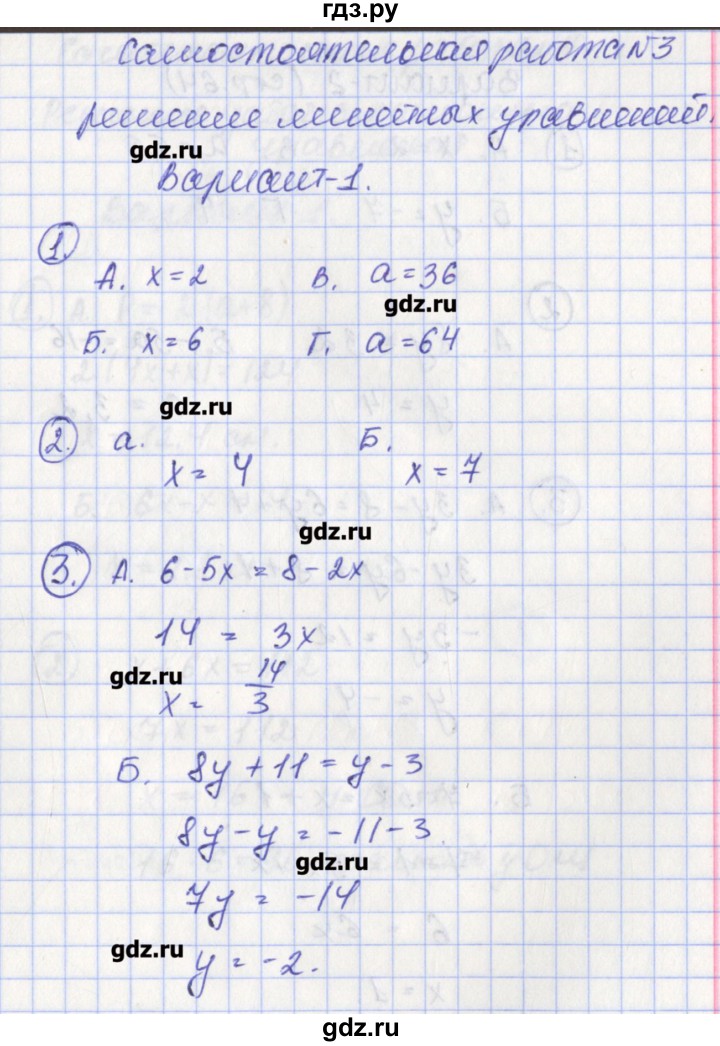 гдз.ру
Самостоятельная работа N3
решение линейных уравнений.
gdz.ru
Вариант-1.
1.
А. x = 2 В. a = 36
gdz.ru
Б. x = 6 Г. a = 64
gdz.ru
2. а. Б.
x = 4 x = 7
gdz.ru
3. А. 6 - 5x = 8 - 2x
14 = 3x
gdz.ru
x = 14/3
Б. 8y + 11 = y - 3
8y - y = -11 - 3
gdz.ru
7y = -14
gdz.ru
y = -2.
gdz.ru